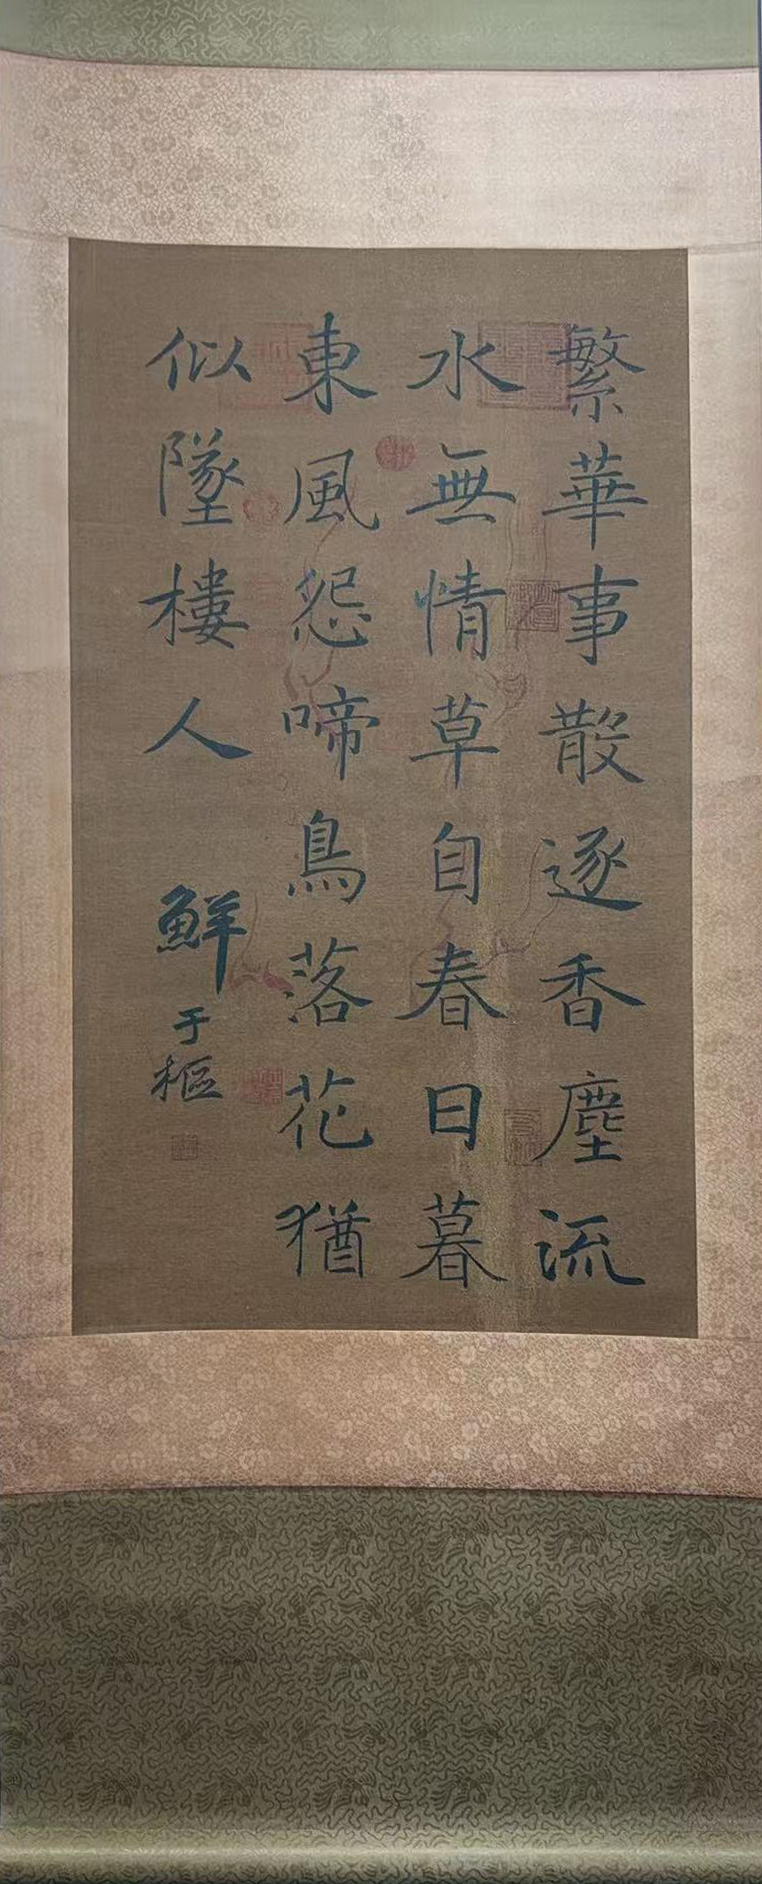 繁華事散逐香塵流
水無情草自春日暮
東風怨啼鳥落花猶
似墜樓人
鮮于樞